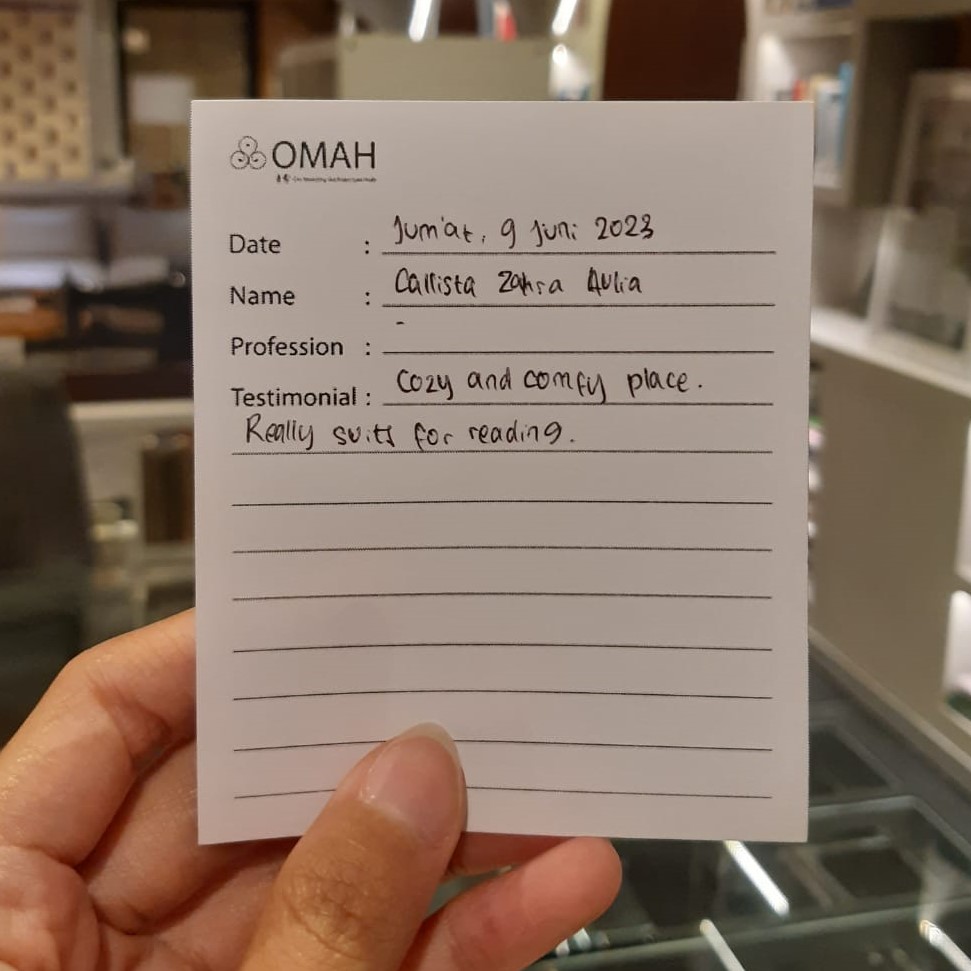 OMAH
Date : Jum'at, 9 Juni 2023
Name : Callista Zahra Aulia
Profession : -
Testimonial : Cozy and comfy place.
Really suits for reading.